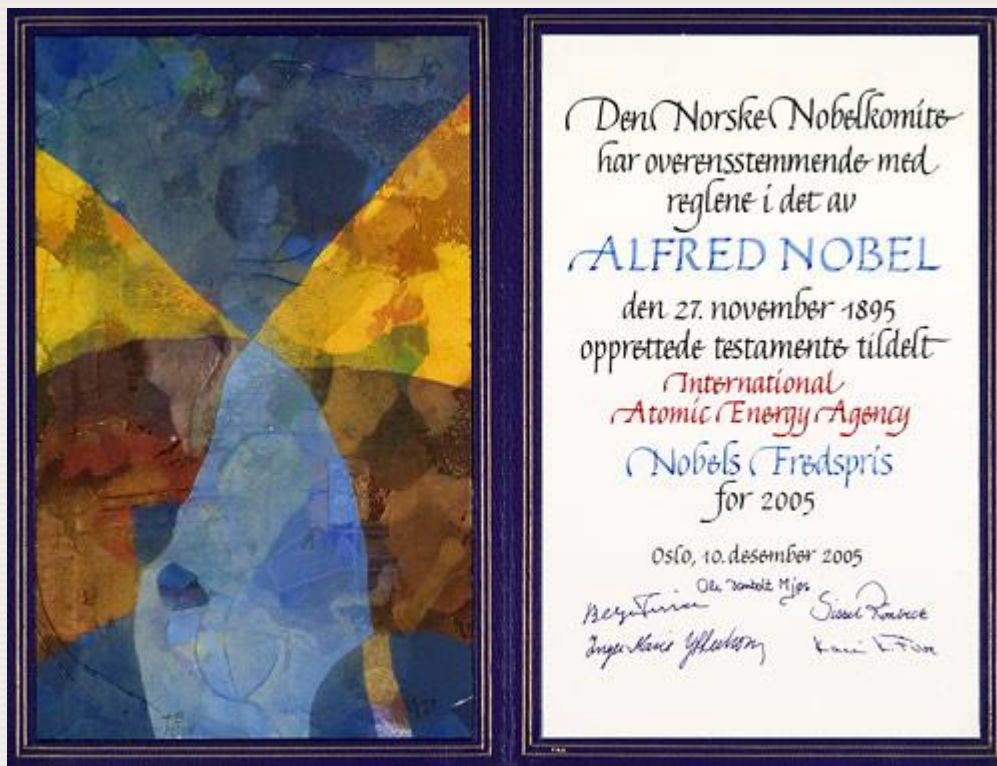 Den Norske Nobelkomite
har overensstemmende med
reglene i det av
ALFRED NOBEL
den 27. november 1895
opprettede testamente tildelt
International
Atomic Energy Agency
Nobels Fredspris
for 2005
Oslo, 10. desember 2005
Ole Danbolt Mjøs
Sissel Rønbeck
Inger-Marie Ytterhorn